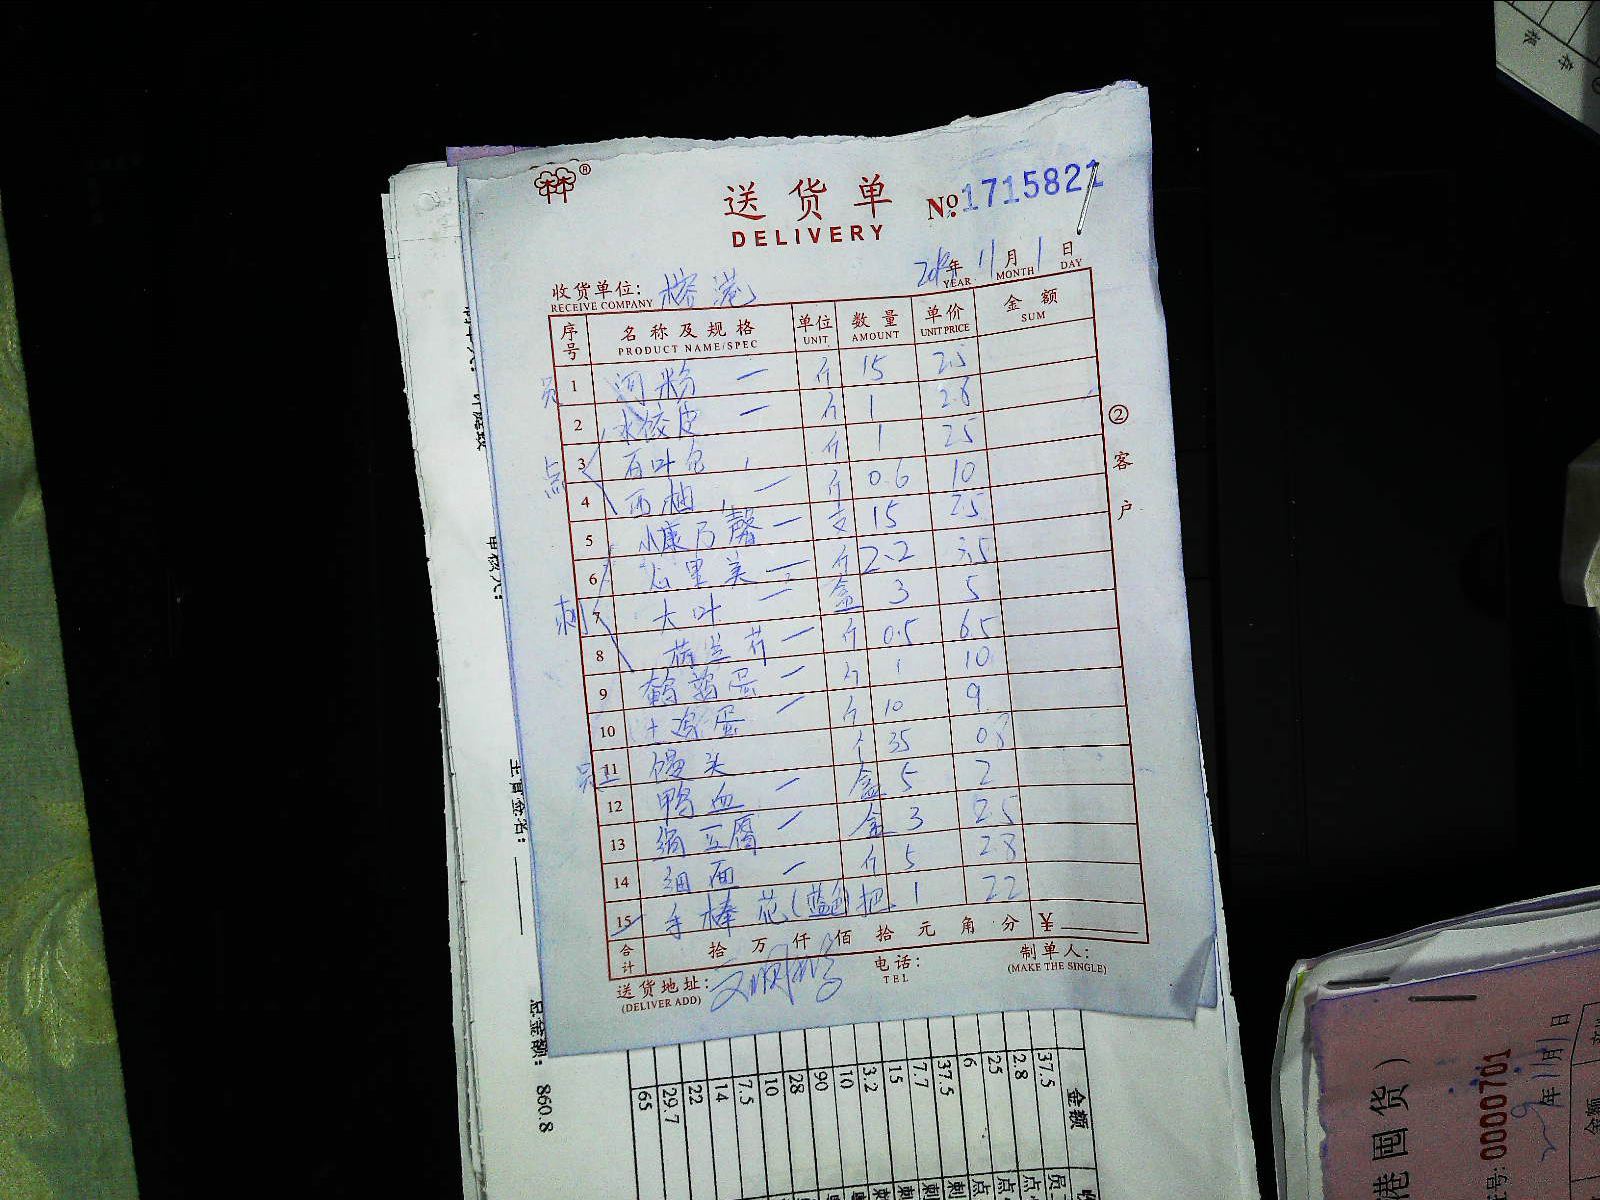 送货单
DELIVERY
No. 1715821
收货单位: 榕港
RECEIVE COMPANY
年 11月 1日
YEAR MONTH DAY
序号 名称及规格 单位 数量 单价 金额
PRODUCT NAME/SPEC UNIT AMOUNT UNIT PRICE SUM
员
1 河粉 斤 15 2.5
2 水饺皮 斤 1 2.8
点
3 百叶包 斤 1 25
4 西柚 斤 0.6 10
5 小康乃馨 支 15 2.5
6 心里美 斤 2.2 3.5
刺
7 大叶 盒 3 5
8 荷兰芹 斤 0.5 6.5
9 鹌鹑蛋 斤 1 10
10 土鸡蛋 斤 10 9
11 馒头 个 35 0.8
12 鸭血 盒 5 2
13 绢豆腐 盒 3 2.5
14 细面 斤 5 2.8
15 手棒花(蓝色) 把 1 22
合计 拾 万 仟 佰 拾 元 角 分 ¥
送货地址:
(DELIVER ADD)
电话:
TEL
制单人:
(MAKE THE SINGLE)
② 客户
审核人:
主管签名:
总金额: 860.8
金额
37.5
2.8
25
6
37.5
7.7
15
3.2
10
90
28
10
7.5
14
22
29.7
65
港囤货)
号:0000701
年11月1日
金额